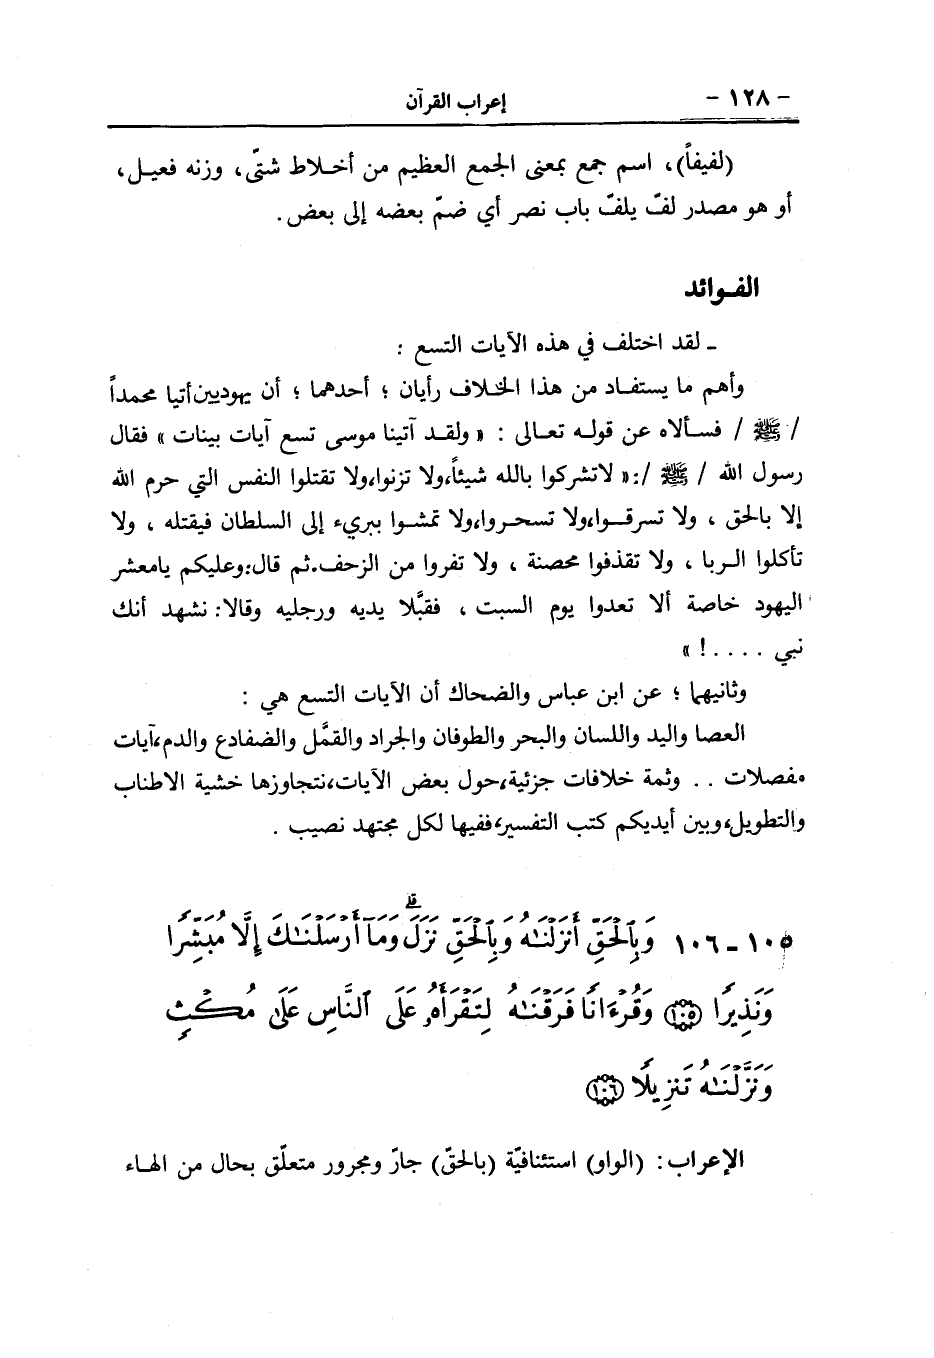 - ١٢٨ -
إعراب القرآن
(لفيفاً)، اسم جمع بمعنى الجمع العظيم من أخـلاط شتّى، وزنه فعيـل،
أو هو مصدر لفّ يلفّ باب نصر أي ضمّ بعضه إلى بعض.
الفـوائد
ـ لقد اختلف في هذه الآيات التسع :
وأهم ما يستفـاد من هذا الخلاف رأيان ؛ أحدهما ؛ أن يهوديين أتيا محمداً
/ ﷺ / فسـألاه عن قولـه تعـالى : « ولقـد آتينا موسى تسع آيات بينات » فقال
رسول الله / ﷺ /:« لاتشركوا بالله شيئاً،ولا تزنوا،ولا تقتلوا النفس التي حرم الله
إلا بالحق ، ولا تسرقـوا،ولا تسحـروا،ولا تمشـوا ببريء إلى السلطان فيقتله ، ولا
تأكلوا الـربا ، ولا تقذفوا محصنة ، ولا تفروا من الزحف.ثم قال:وعليكم يامعشر
اليهود خاصة ألا تعدوا يوم السبت ، فقبَّلا يديه ورجليه وقالا: نشهد أنك
نبي . . . .! »
وثانيهما ؛ عن ابن عباس والضحاك أن الآيات التسع هي :
العصا واليد واللسان والبحر والطوفان والجراد والقمَّل والضفادع والدم،آيات
مفصلات . . وثمة خلافات جزئية،حول بعض الآيات،نتجاوزها خشية الاطناب
والتطويل،وبين أيديكم كتب التفسير،ففيها لكل مجتهد نصيب .
١٠٥ - ١٠٦ وَبِٱلْحَقِّ أَنزَلْنَٰهُ وَبِٱلْحَقِّ نَزَلَ ۗ وَمَآ أَرْسَلْنَٰكَ إِلَّا مُبَشِّرًا
وَنَذِيرًا ۝١٠٥ وَقُرْءَانًا فَرَقْنَٰهُ لِتَقْرَأَهُۥ عَلَى ٱلنَّاسِ عَلَىٰ مُكْثٍ
وَنَزَّلْنَٰهُ تَنزِيلًا ۝١٠٦
الإعراب: (الواو) استئنافيّة (بالحقّ) جارّ ومجرور متعلّق بحال من الهـاء